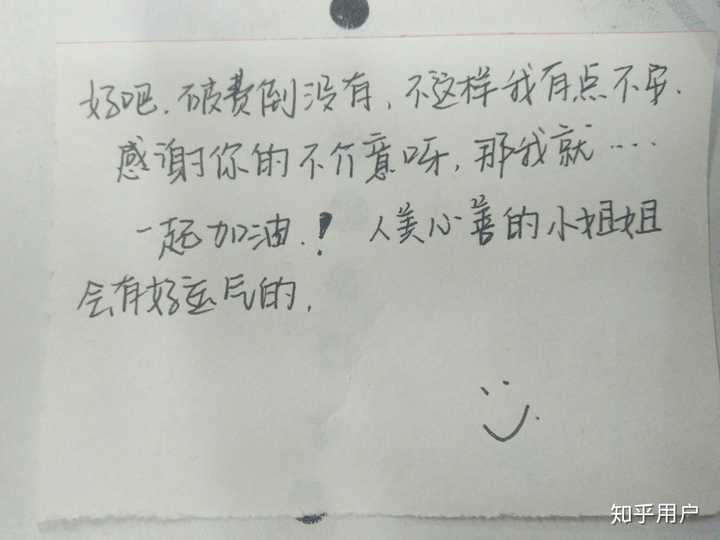 好吧.破费倒没有,不这样我有点不安.
感谢你的不介意呀,那我就....
一起加油.！ 人美心善的小姐姐
会有好运气的,
知乎用户